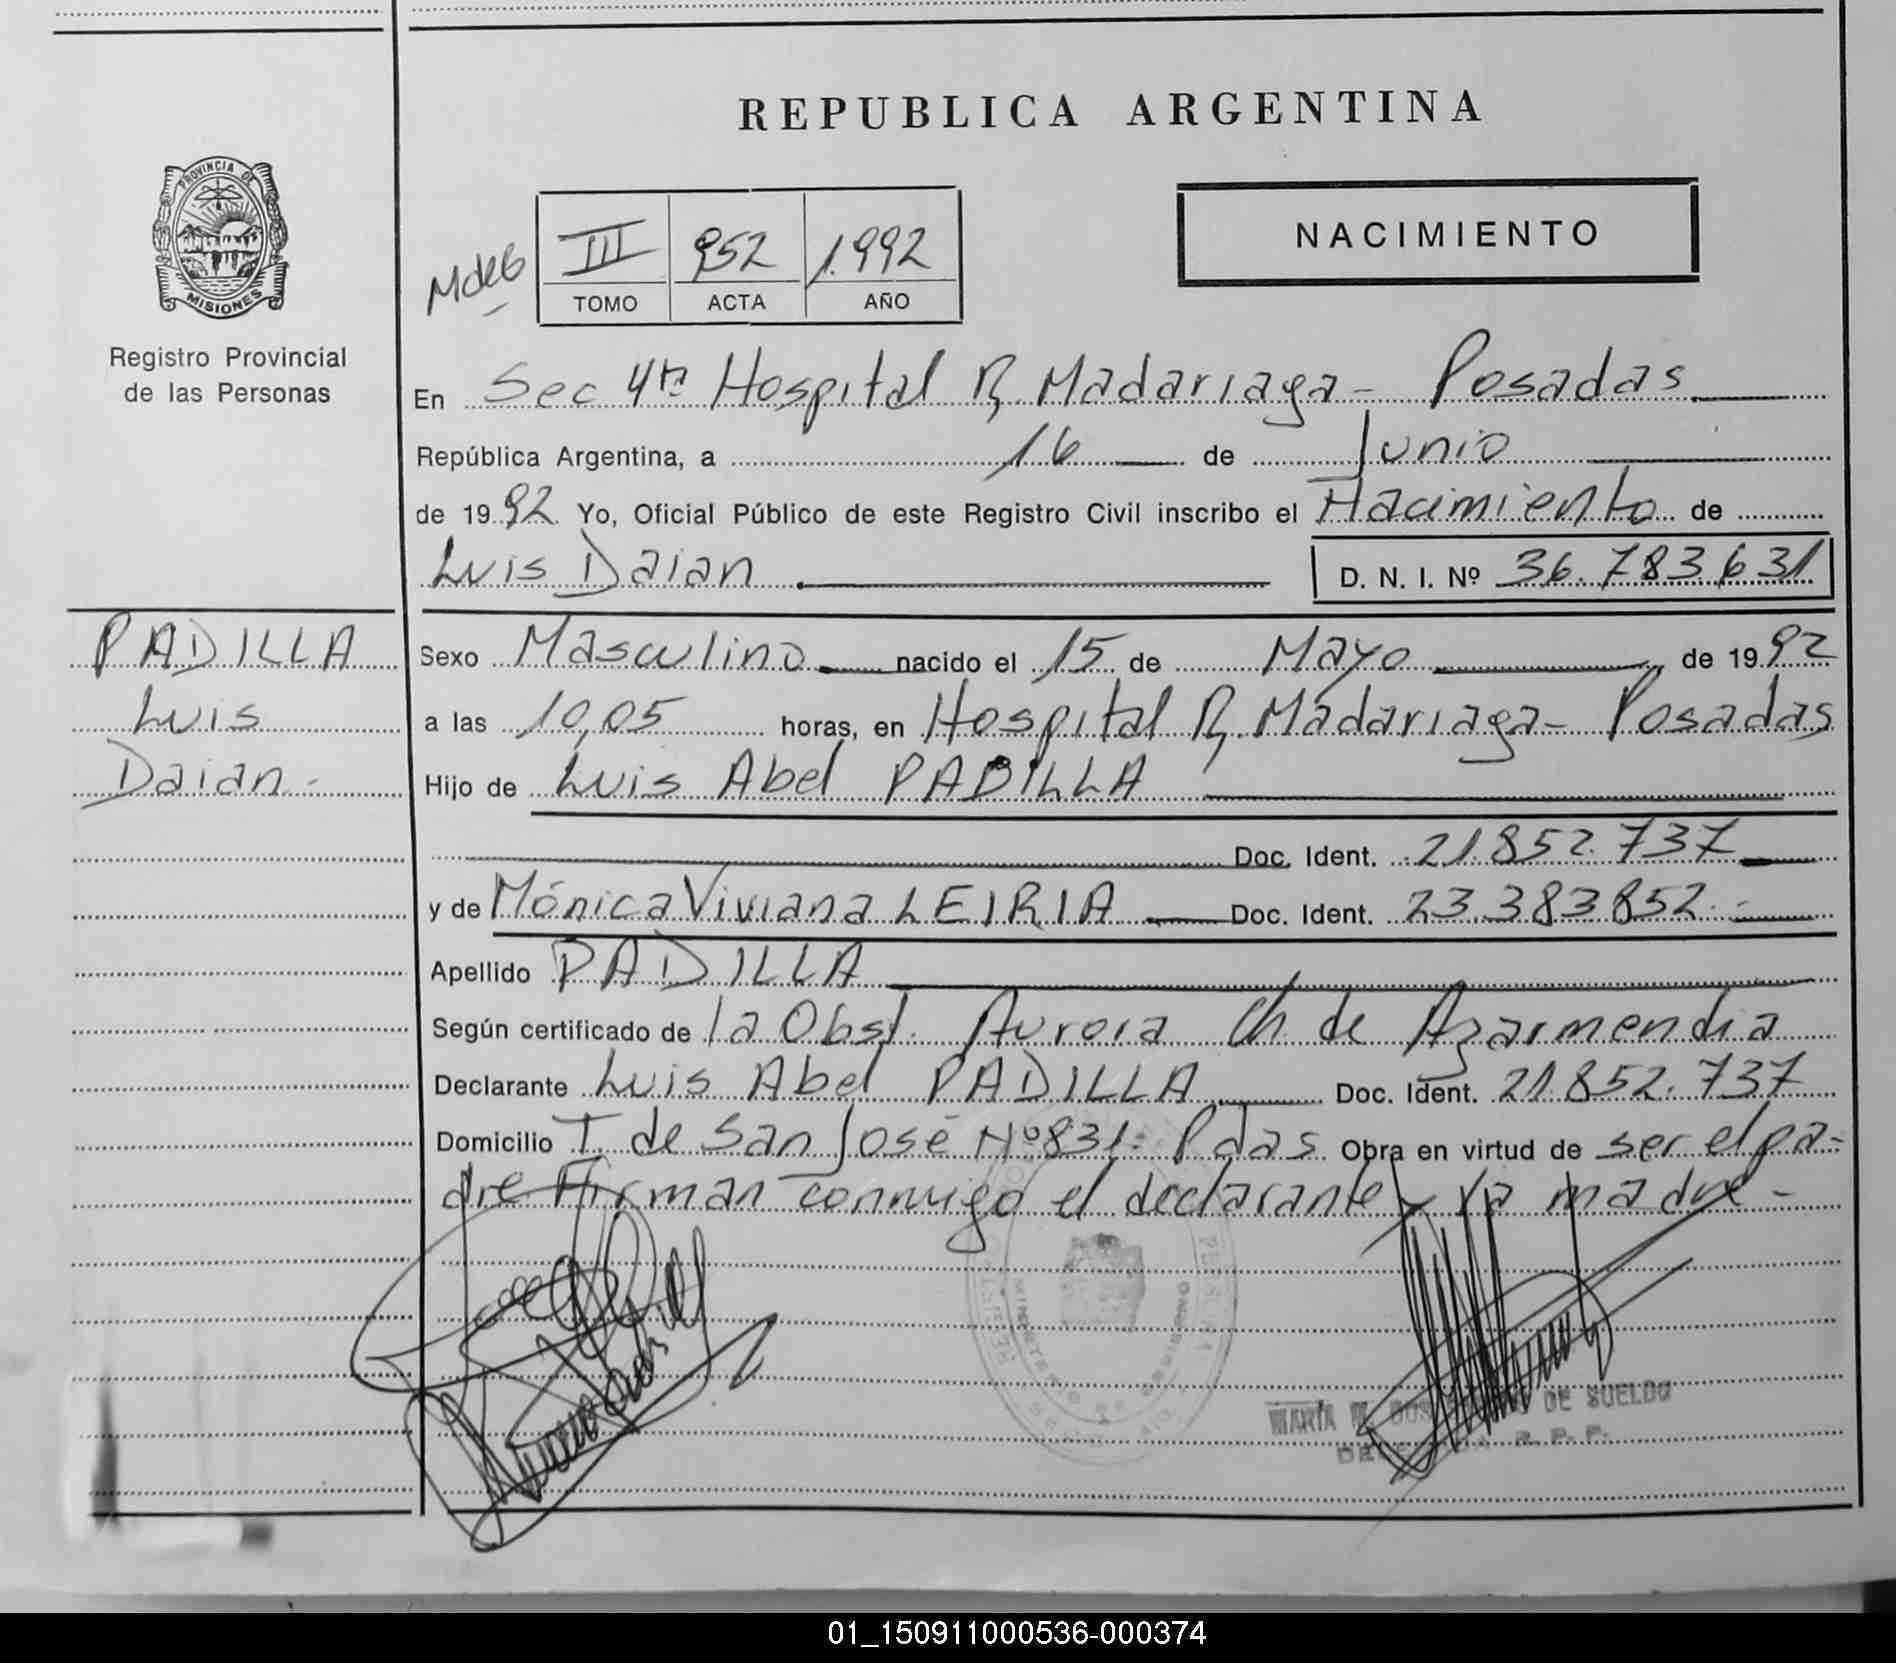 REPUBLICA ARGENTINA
PROVINCIA DE
MISIONES
Registro Provincial
de las Personas
NACIMIENTO
III 952 1.992
TOMO ACTA AÑO
En Sec 4ta Hospital R. Madariaga - Posadas
República Argentina, a 16 de Junio
de 1992 Yo, Oficial Público de este Registro Civil inscribo el Nacimiento de
Luis Daian D. N. I. Nº 36.783.631
PADILLA
Luis
Daian.-
Sexo Masculino nacido el 15 de Mayo de 1992
a las 10,05 horas, en Hospital R. Madariaga - Posadas
Hijo de Luis Abel PADILLA
Doc. Ident. 21.852.737
y de Mónica Viviana LEIRIA Doc. Ident. 23.383.852.-
Apellido PADILLA
Según certificado de la Obst. Aurora Ch. de Azarmendia
Declarante Luis Abel PADILLA Doc. Ident. 21.852.737
Domicilio T. de San José Nº 831. Pdas Obra en virtud de ser el pa-
dre Firman conmigo el declarante y la madre -
MARIA DE SUELDO
01_150911000536-000374